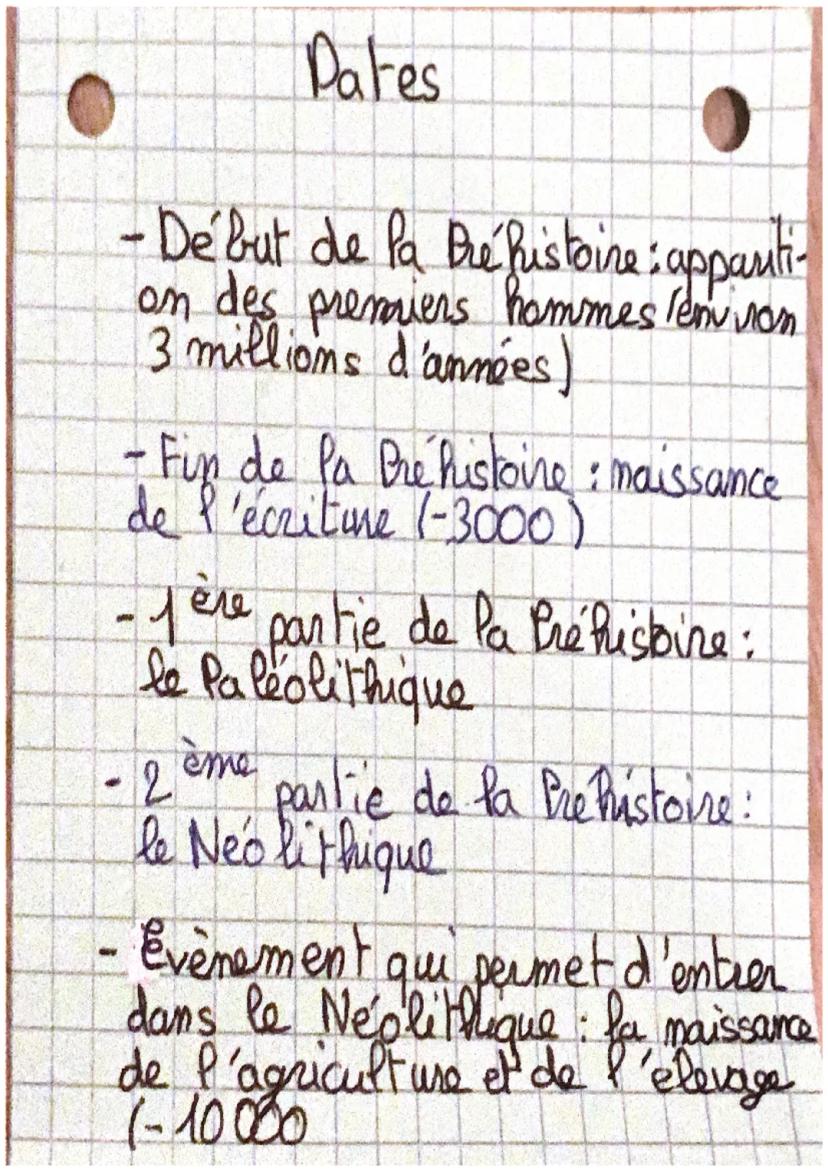 Dates
- Début de la Préhistoire : appariti-
on des premiers hommes (environ
3 millions d'années)
- Fin de la Préhistoire : naissance
de l'écriture (-3000)
- 1ère partie de la Préhistoire :
le Paléolithique
- 2ème partie de la Préhistoire :
le Néolithique
- Evènement qui permet d'entrer
dans le Néolithique : la naissance
de l'agriculture et de l'élevage
(-10 000